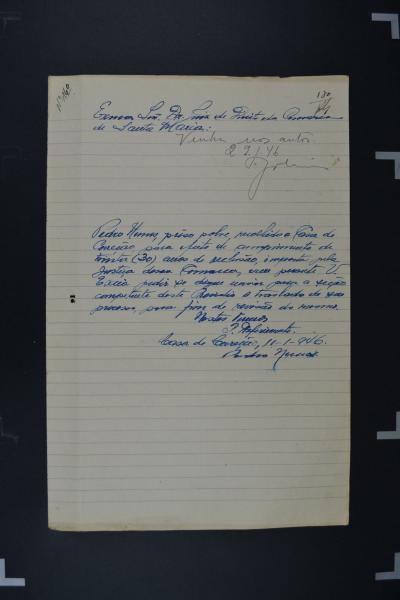 130
Exmo Snr. Dr. Juiz de Direito da Comarca
de Santa Maria:
Venha nos autos.
22.1.46
Pedro Nunes, preso pobre, recolhido a Casa de
Correção para efeito de cumprimento de
trinta (30) anos de reclusão, imposto pela
Justiça dessa Comarca, vem perante V.
Excia pedir se digne enviar para a seção
competente deste Presidio o traslado de seu
processo, para fins de revisão do mesmo.
Nestes Termos
P. Deferimento.
Casa de Correção, 11-1-946.
Pedro Nunes.